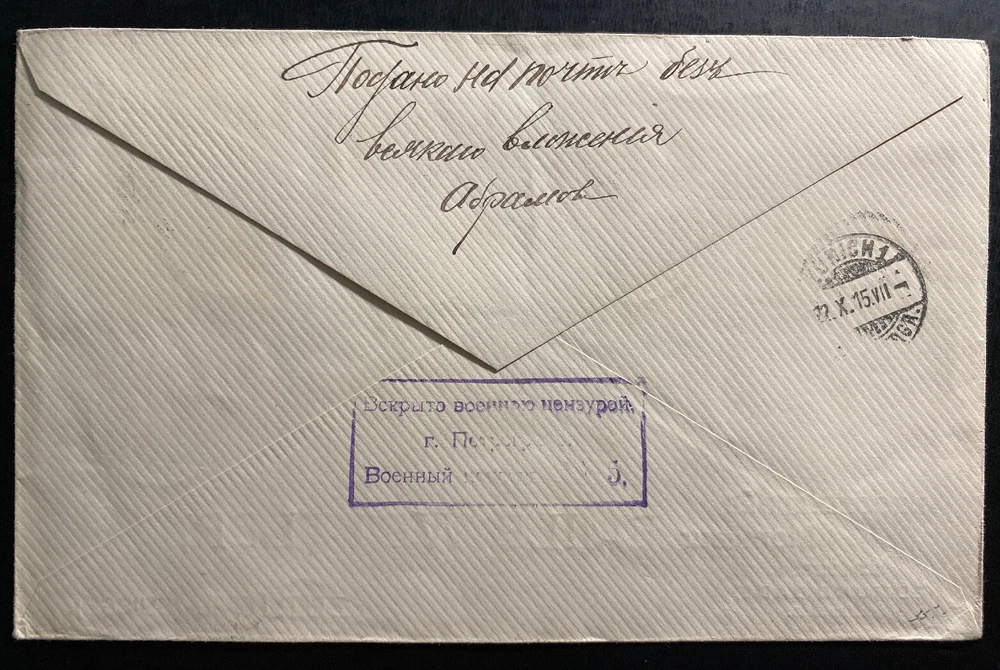 Подано на почтѣ безъ
всякаго вложенія
Абрамов
ZÜRICH 1
22.X.15.VII
Вскрыто военною цензурой.
г.
Военный 5.